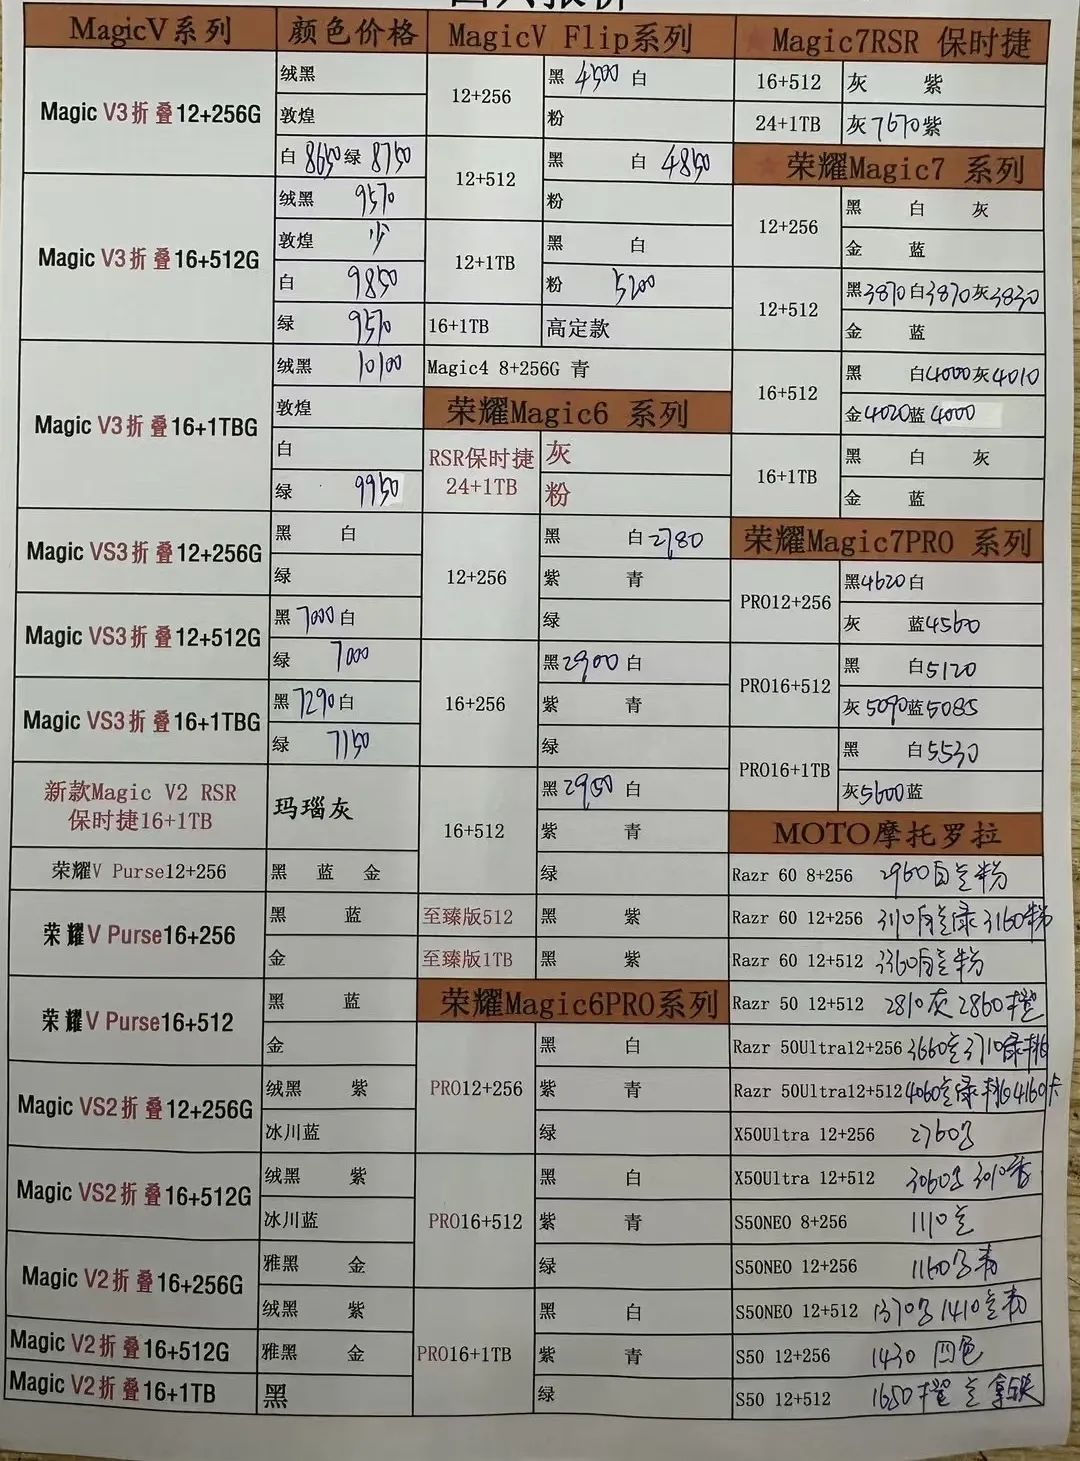 MagicV系列 颜色价格
Magic V3折叠12+256G
绒黑
敦煌
白 8650 绿 8750
Magic V3折叠16+512G
绒黑 9570
敦煌 少
白 9850
绿 9570
Magic V3折叠16+1TBG
绒黑 10100
敦煌
白
绿 9950
Magic VS3折叠12+256G
黑 白
绿
Magic VS3折叠12+512G
黑 7000 白
绿 7000
Magic VS3折叠16+1TBG
黑 7290 白
绿 7150
新款Magic V2 RSR
保时捷16+1TB
玛瑙灰
荣耀V Purse12+256
黑 蓝 金
荣耀V Purse16+256
黑 蓝
金
荣耀V Purse16+512
黑 蓝
金
Magic VS2折叠12+256G
绒黑 紫
冰川蓝
Magic VS2折叠16+512G
绒黑 紫
冰川蓝
Magic V2折叠16+256G
雅黑 金
绒黑 紫
Magic V2折叠16+512G
雅黑 金
Magic V2折叠16+1TB
黑
MagicV Flip系列
12+256
黑 4500 白
粉
12+512
黑 白 4850
粉
12+1TB
黑 白
粉 5200
16+1TB 高定款
Magic4 8+256G 青
荣耀Magic6 系列
RSR保时捷
24+1TB
灰
粉
12+256
黑 白 2780
紫 青
绿
16+256
黑 2900 白
紫 青
绿
16+512
黑 2950 白
紫 青
绿
至臻版512 黑 紫
至臻版1TB 黑 紫
荣耀Magic6PRO系列
PRO12+256
黑 白
紫 青
绿
PRO16+512
黑 白
紫 青
绿
PRO16+1TB
黑 白
紫 青
绿
Magic7RSR 保时捷
16+512 灰 紫
24+1TB 灰 7670 紫
荣耀Magic7 系列
12+256
黑 白 灰
金 蓝
12+512
黑 3870 白 3870 灰 3830
金 蓝
16+512
黑 白 4000 灰 4010
金 4020 蓝 4000
16+1TB
黑 白 灰
金 蓝
荣耀Magic7PRO 系列
PRO12+256
黑 4620 白
灰 蓝 4560
PRO16+512
黑 白 5120
灰 5090 蓝 5085
PRO16+1TB
黑 白 5530
灰 5600 蓝
MOTO摩托罗拉
Razr 60 8+256 2960 粉
Razr 60 12+256 3110 绿 3160 粉
Razr 60 12+512 3360 粉
Razr 50 12+512 2810 灰 2860 橙
Razr 50Ultra12+256 3660 3710 绿 桃
Razr 50Ultra12+512 4060 绿 桃 4160
X50Ultra 12+256 2760
X50Ultra 12+512 3060 3010
S50NEO 8+256 1110
S50NEO 12+256 1160
S50NEO 12+512 1370 1410
S50 12+256 1430 四色
S50 12+512 1650 橙